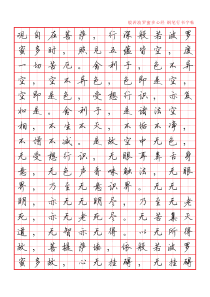 观自在菩萨，行深般若波罗
蜜多时，照见五蕴皆空，度
一切苦厄。舍利子，色不异
空，空不异色，色即是空，
空即是色，受想行识，亦复
如是。舍利子，是诸法空
相，不生不灭，不垢不净，
不增不减。是故空中无色，
无受想行识，无眼耳鼻舌身
意，无色声香味触法，无眼
界，乃至无意识界。无无
明，亦无老死尽。无苦集灭
道，无智亦无得。以无所得
故，菩提萨埵，依般若波罗
蜜多故，心无挂碍，无挂碍